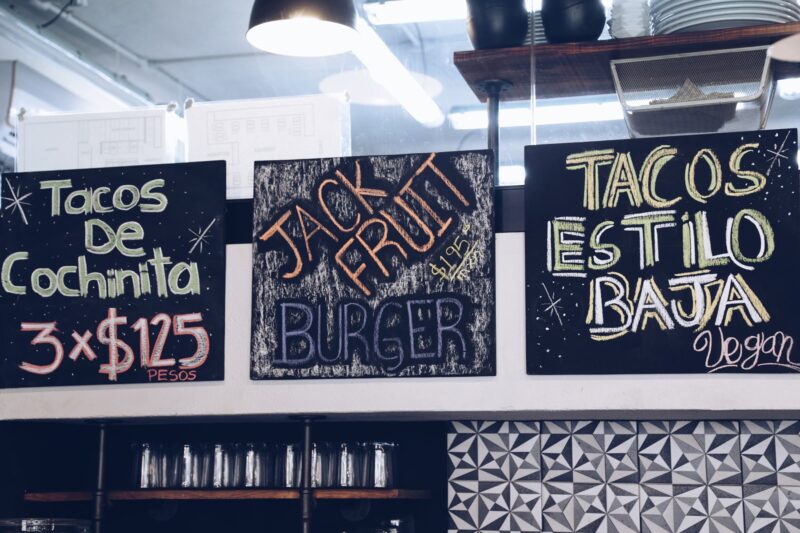 Tacos
De
Cochinita
3x$125
PESOS
JACK
FRUIT
$195
BURGER
TACOS
ESTILO
BAJA
Vegan